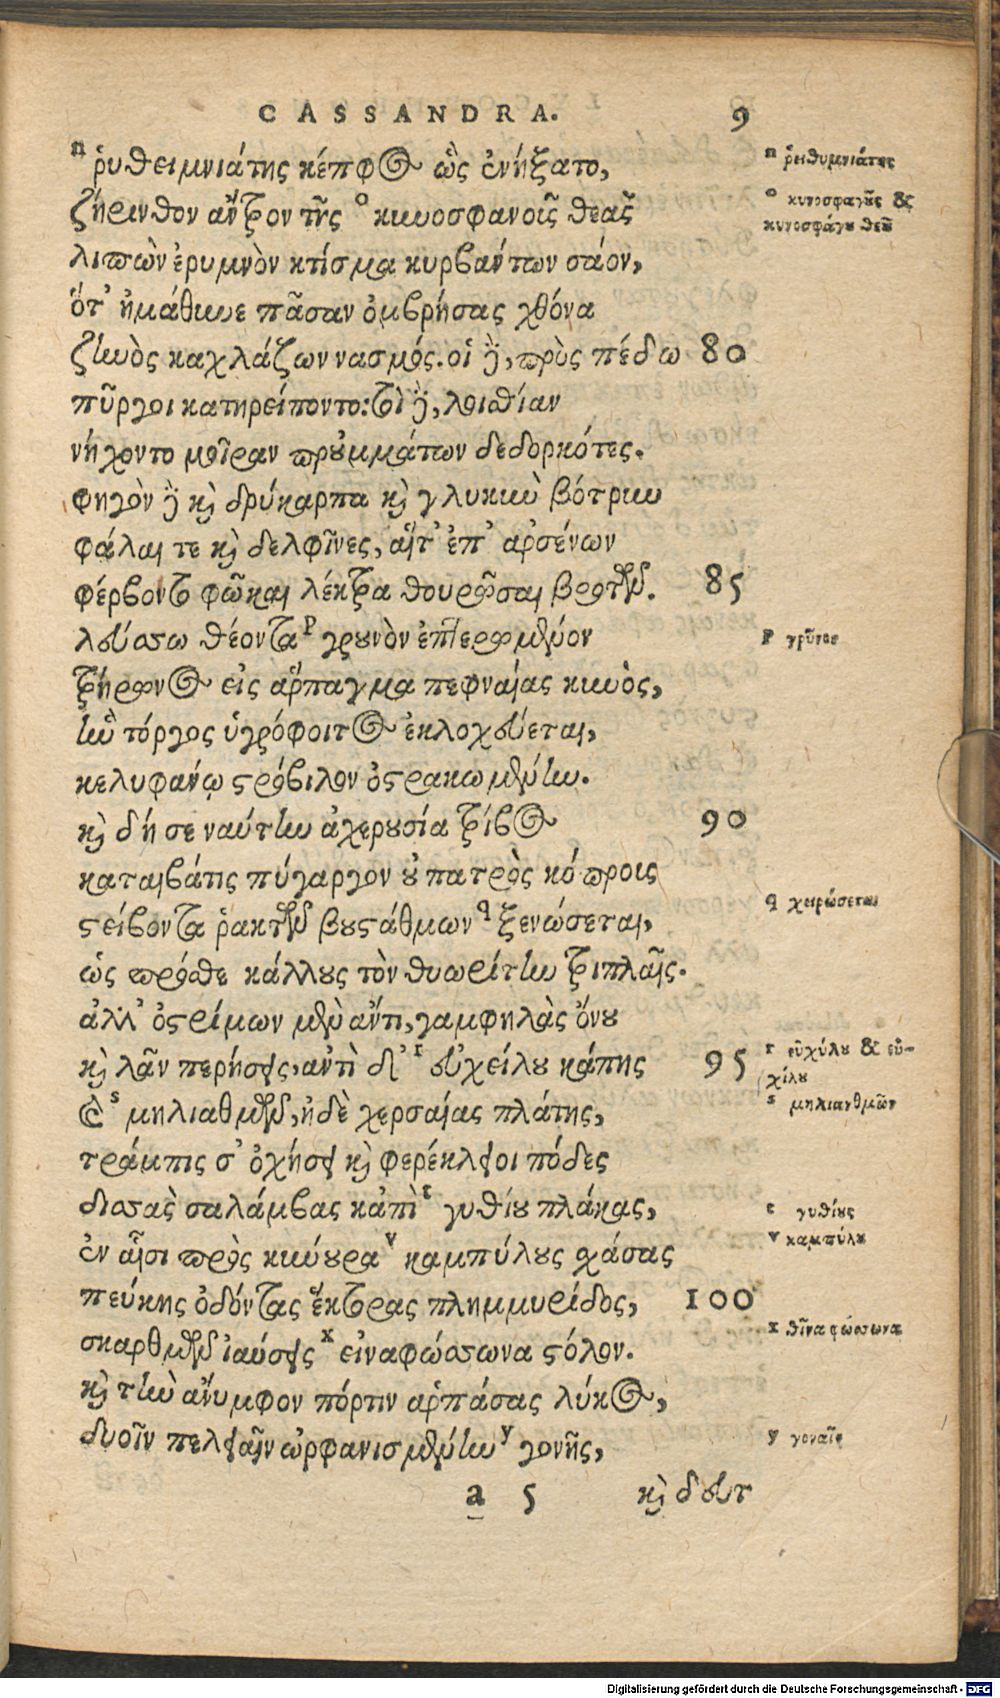 CASSANDRA. 9
ⁿ ῥυθειμνιάτης κέπφος ὣς ἐνήξατο,
ζήρινθον ἄντρον τῆς ᵒ κυνοσφανοῖς θεᾶς
λιπὼν ἐρυμνὸν κτίσμα κυρβάντων σάον,
ὅτ' ἠμάθυνε πᾶσαν ὀμβρήσας χθόνα
ζηνὸς καχλάζων νασμός. οἱ δὲ, πρὸς πέδω 80
πῦργοι κατηρείποντο: τοὶ δὲ, λοισθίαν
νήχοντο μοῖραν πρυμμάτων δεδορκότες.
φηγὸν δὲ καὶ δρύκαρπα καὶ γλυκιὺ βότρυν
φάλαι τε καὶ δελφῖνες, αἵτ' ἐπ' ἀρσένων
φέρβοντο φῶκαι λέκτρα θουρῶσαι βροτῶν. 85
λεύσσω θέοντα ᵖ γρυνὸν ἐπτερωμένον
τρήρωνος εἰς ἅρπαγμα πεφναίας κυνὸς,
ἣν τόργος ὑγρόφοιτος ἐκλοχεύεται,
κελυφανῳ στρόβιλον ὀστρακωμένην.
καὶ δή σε ναύτην ἀχερουσία τρίβος
90
καταιβάτις πύγαργον οὐ πατρὸς κόπροις
στείβοντα ῥακτῶν βουστάθμων ᑫ ξενώσεται,
ὡς πρόσθε κάλλους τὸν θυωρίτην τριπλαῖς.
ἀλλ' ὀστρίμων μὲν ἀντι, γαμφηλὰς ὄνου
καὶ λᾶν περήσεις, ἀντὶ δ' ʳ εὐχείλου κάπης 95
καὶ ˢ μηλιαθμῶν, ἠδὲ χερσαίας πλάτης,
τράμπις σ' ὀχήσει καὶ φερέκλειοι πόδες
δισσὰς σαλάμβας κἀπὶ ᵗ γυθίου πλάκας,
ἐν αἷσι πρὸς κυνουρα ᵛ καμπύλους σχάσας
πεύκης ὀδόντας ἕκτορας πλημμυρίδος, 100
σκαρθμῶν ἰαύσεις ˣ εἰναφώσσωνα στόλον.
καὶ τὴν ἄνυμφον πόρτιν ἁρπάσας λύκος,
δυοῖν πελειαῖν ὠρφανισμένην ʸ γονῆς,
a 5 καὶ δευτ
n ῥειθυμνιάτης
o κυνοσφαγοῦς &
κυνοσφάγου θεοῦ
p γρῦνον
q χειρώσεται
r εὐχύλου & εὐ-
χίλου
s μηλιανθμῶν
t γυθίους
v καμπύλου
x θῖνα φώσσωνα
y γοναῖς
Digitalisierung gefördert durch die Deutsche Forschungsgemeinschaft - DFG